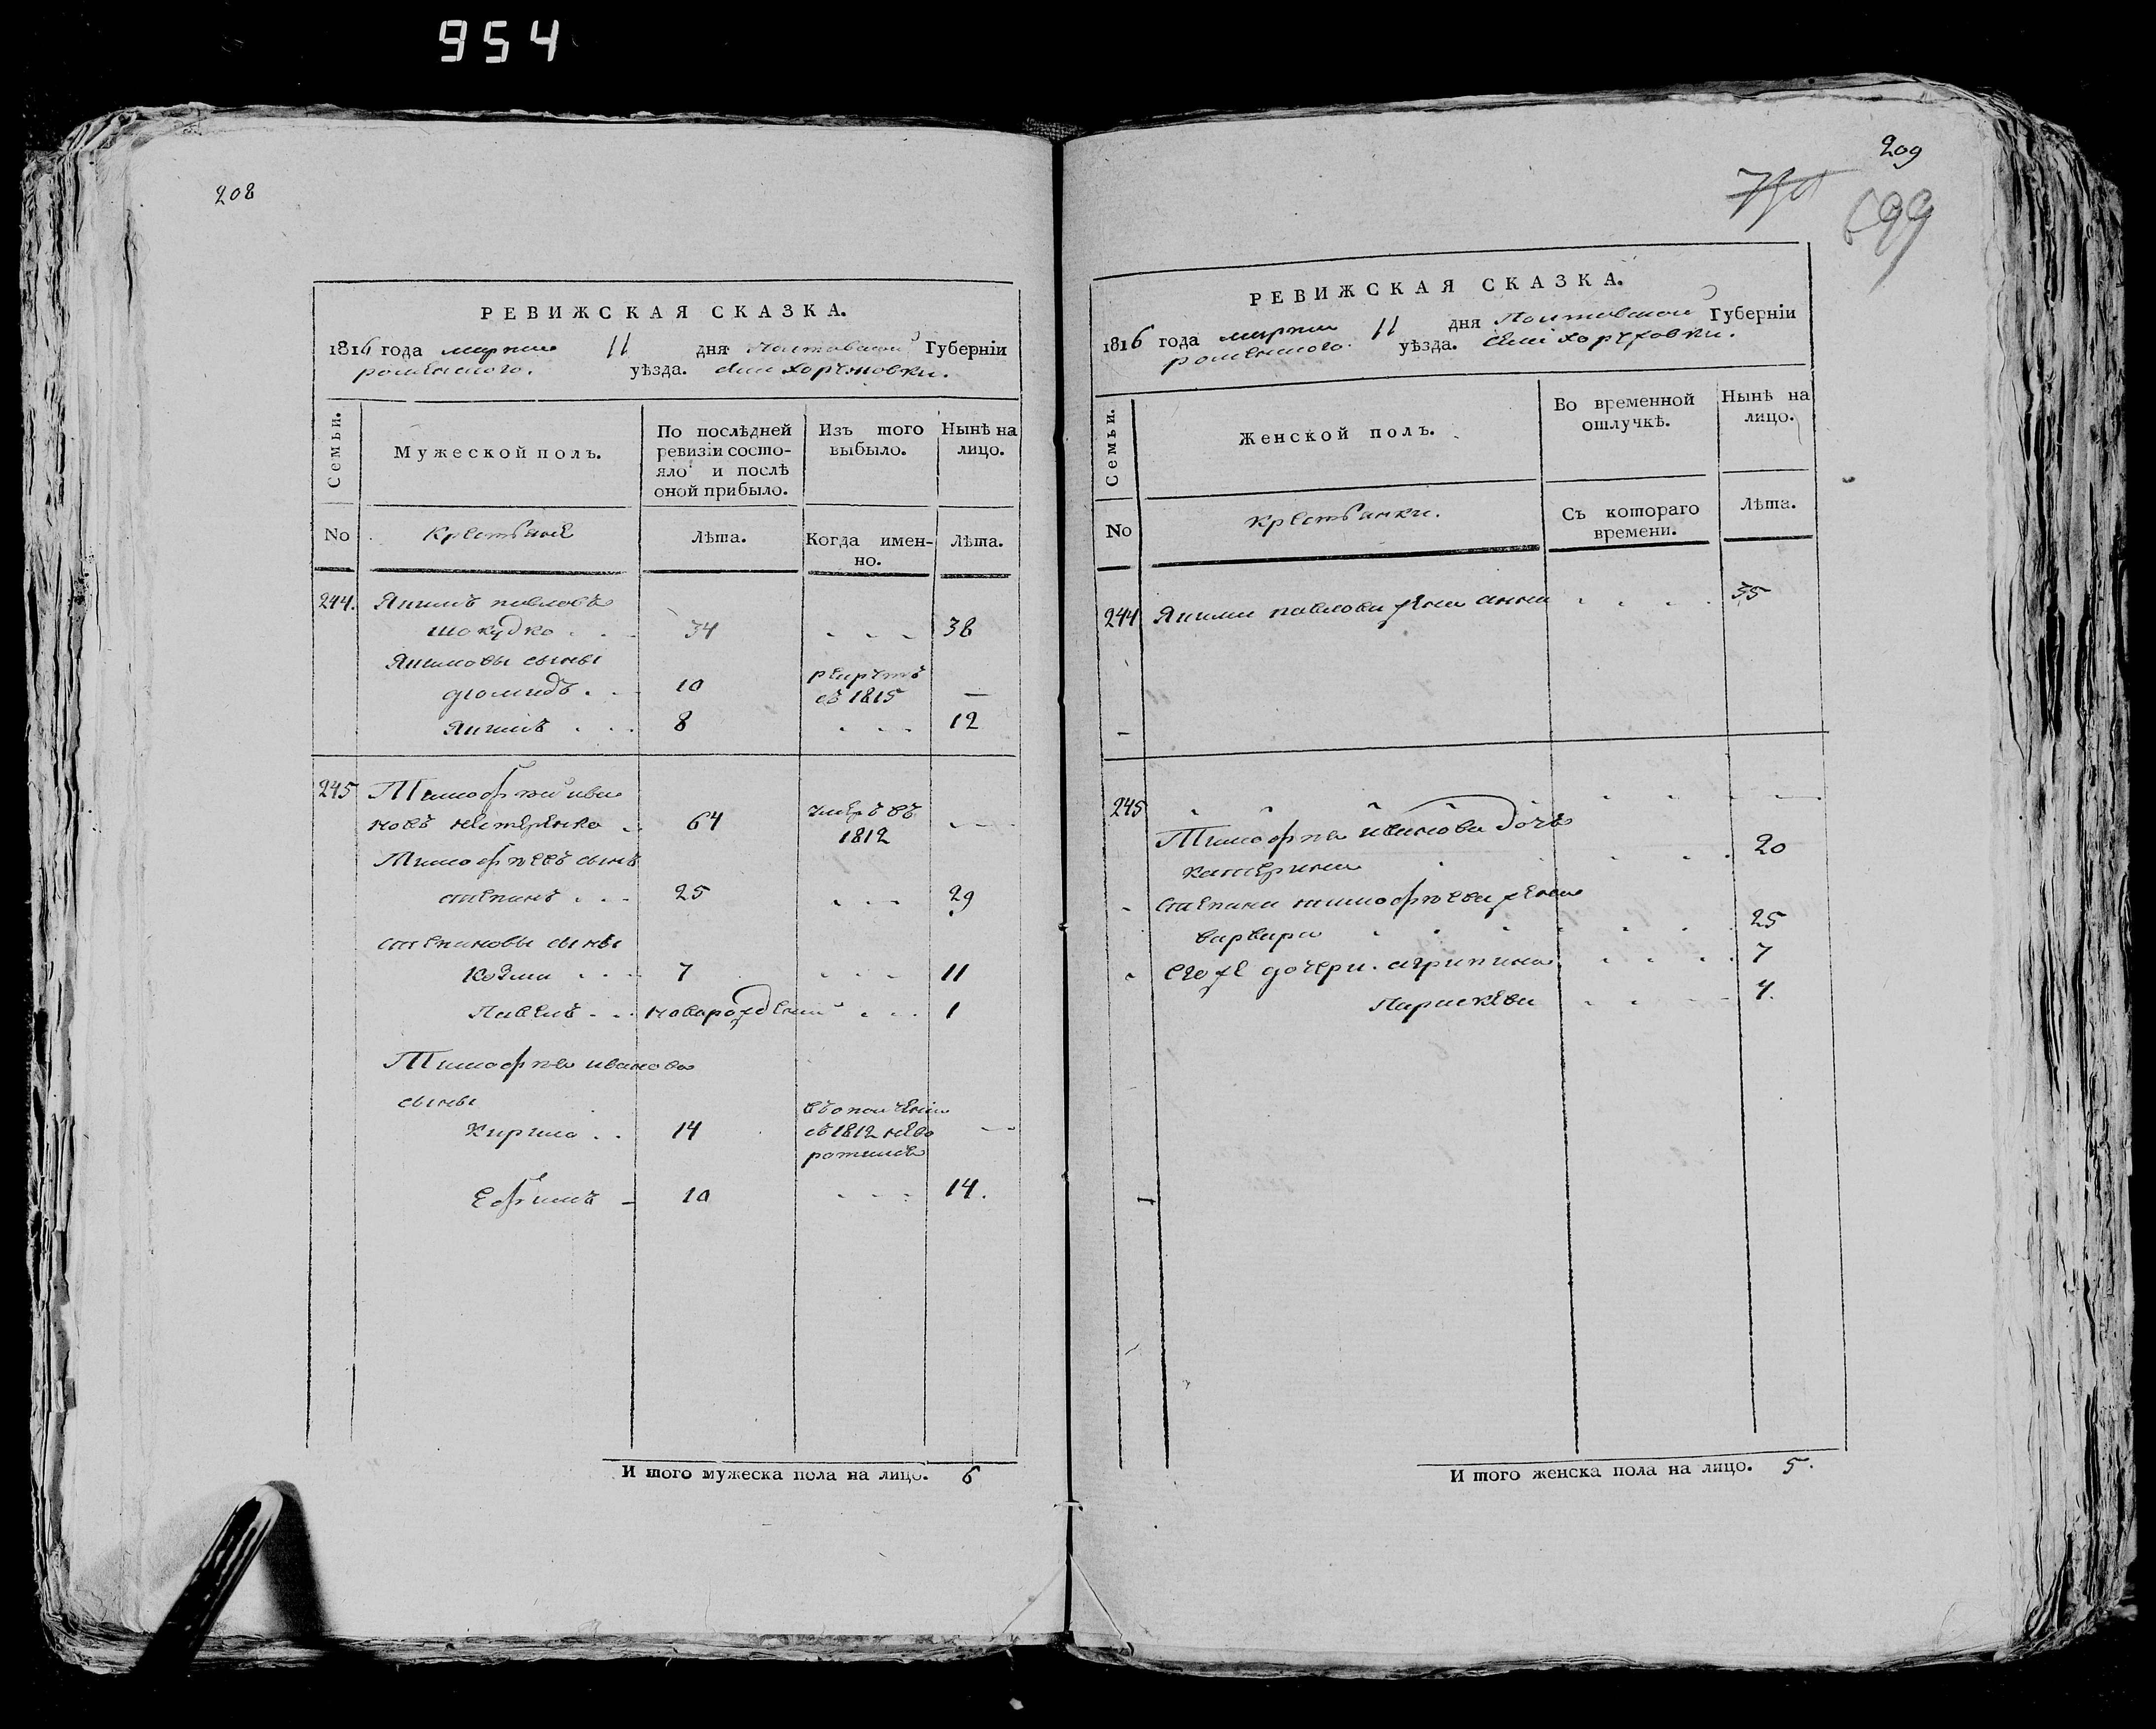 954
208
РЕВИЖСКАЯ СКАЗКА.
1816 года марта 11 дня Полтавской Губерніи
роменского. уѣзда.
Семьи.
Мужеской полъ.
По послѣдней ревизіи состояло и послѣ оной прибыло.
Изъ того выбыло.
Нынѣ на лицо.
No
Крестьяне
Лѣта.
Когда именно.
Лѣта.
244. Якимъ павловъ
34 38
Якимовы сыны
10 съ 1815 —
Якимъ 8 12
245 Тимофѣй ива
новъ нестеренко 64 умеръ въ 1812
Тимофѣевъ сынъ
степанъ 25 29
степановы сыны
Козма 7 11
Павелъ новорожденный 1
Тимофѣя иванова
сыны
Кирило 14 въ ополченіи съ 1812 нево ротился
Ефимъ 10 14.
И того мужеска пола на лицо. 6
209
699
РЕВИЖСКАЯ СКАЗКА.
1816 года марта 11 дня Полтавской Губерніи
роменского. уѣзда.
Семьи.
Женской полъ.
Во временной отлучкѣ.
Нынѣ на лицо.
No
крестьянки.
Съ котораго времени.
Лѣта.
244 Якима павлова жена анна 35
245
Тимофѣя иванова дочь
катерина 20
степана тимофѣева жена
варвара 25
его же дочери. агрипина 7
Параскева 4.
И того женска пола на лицо. 5.